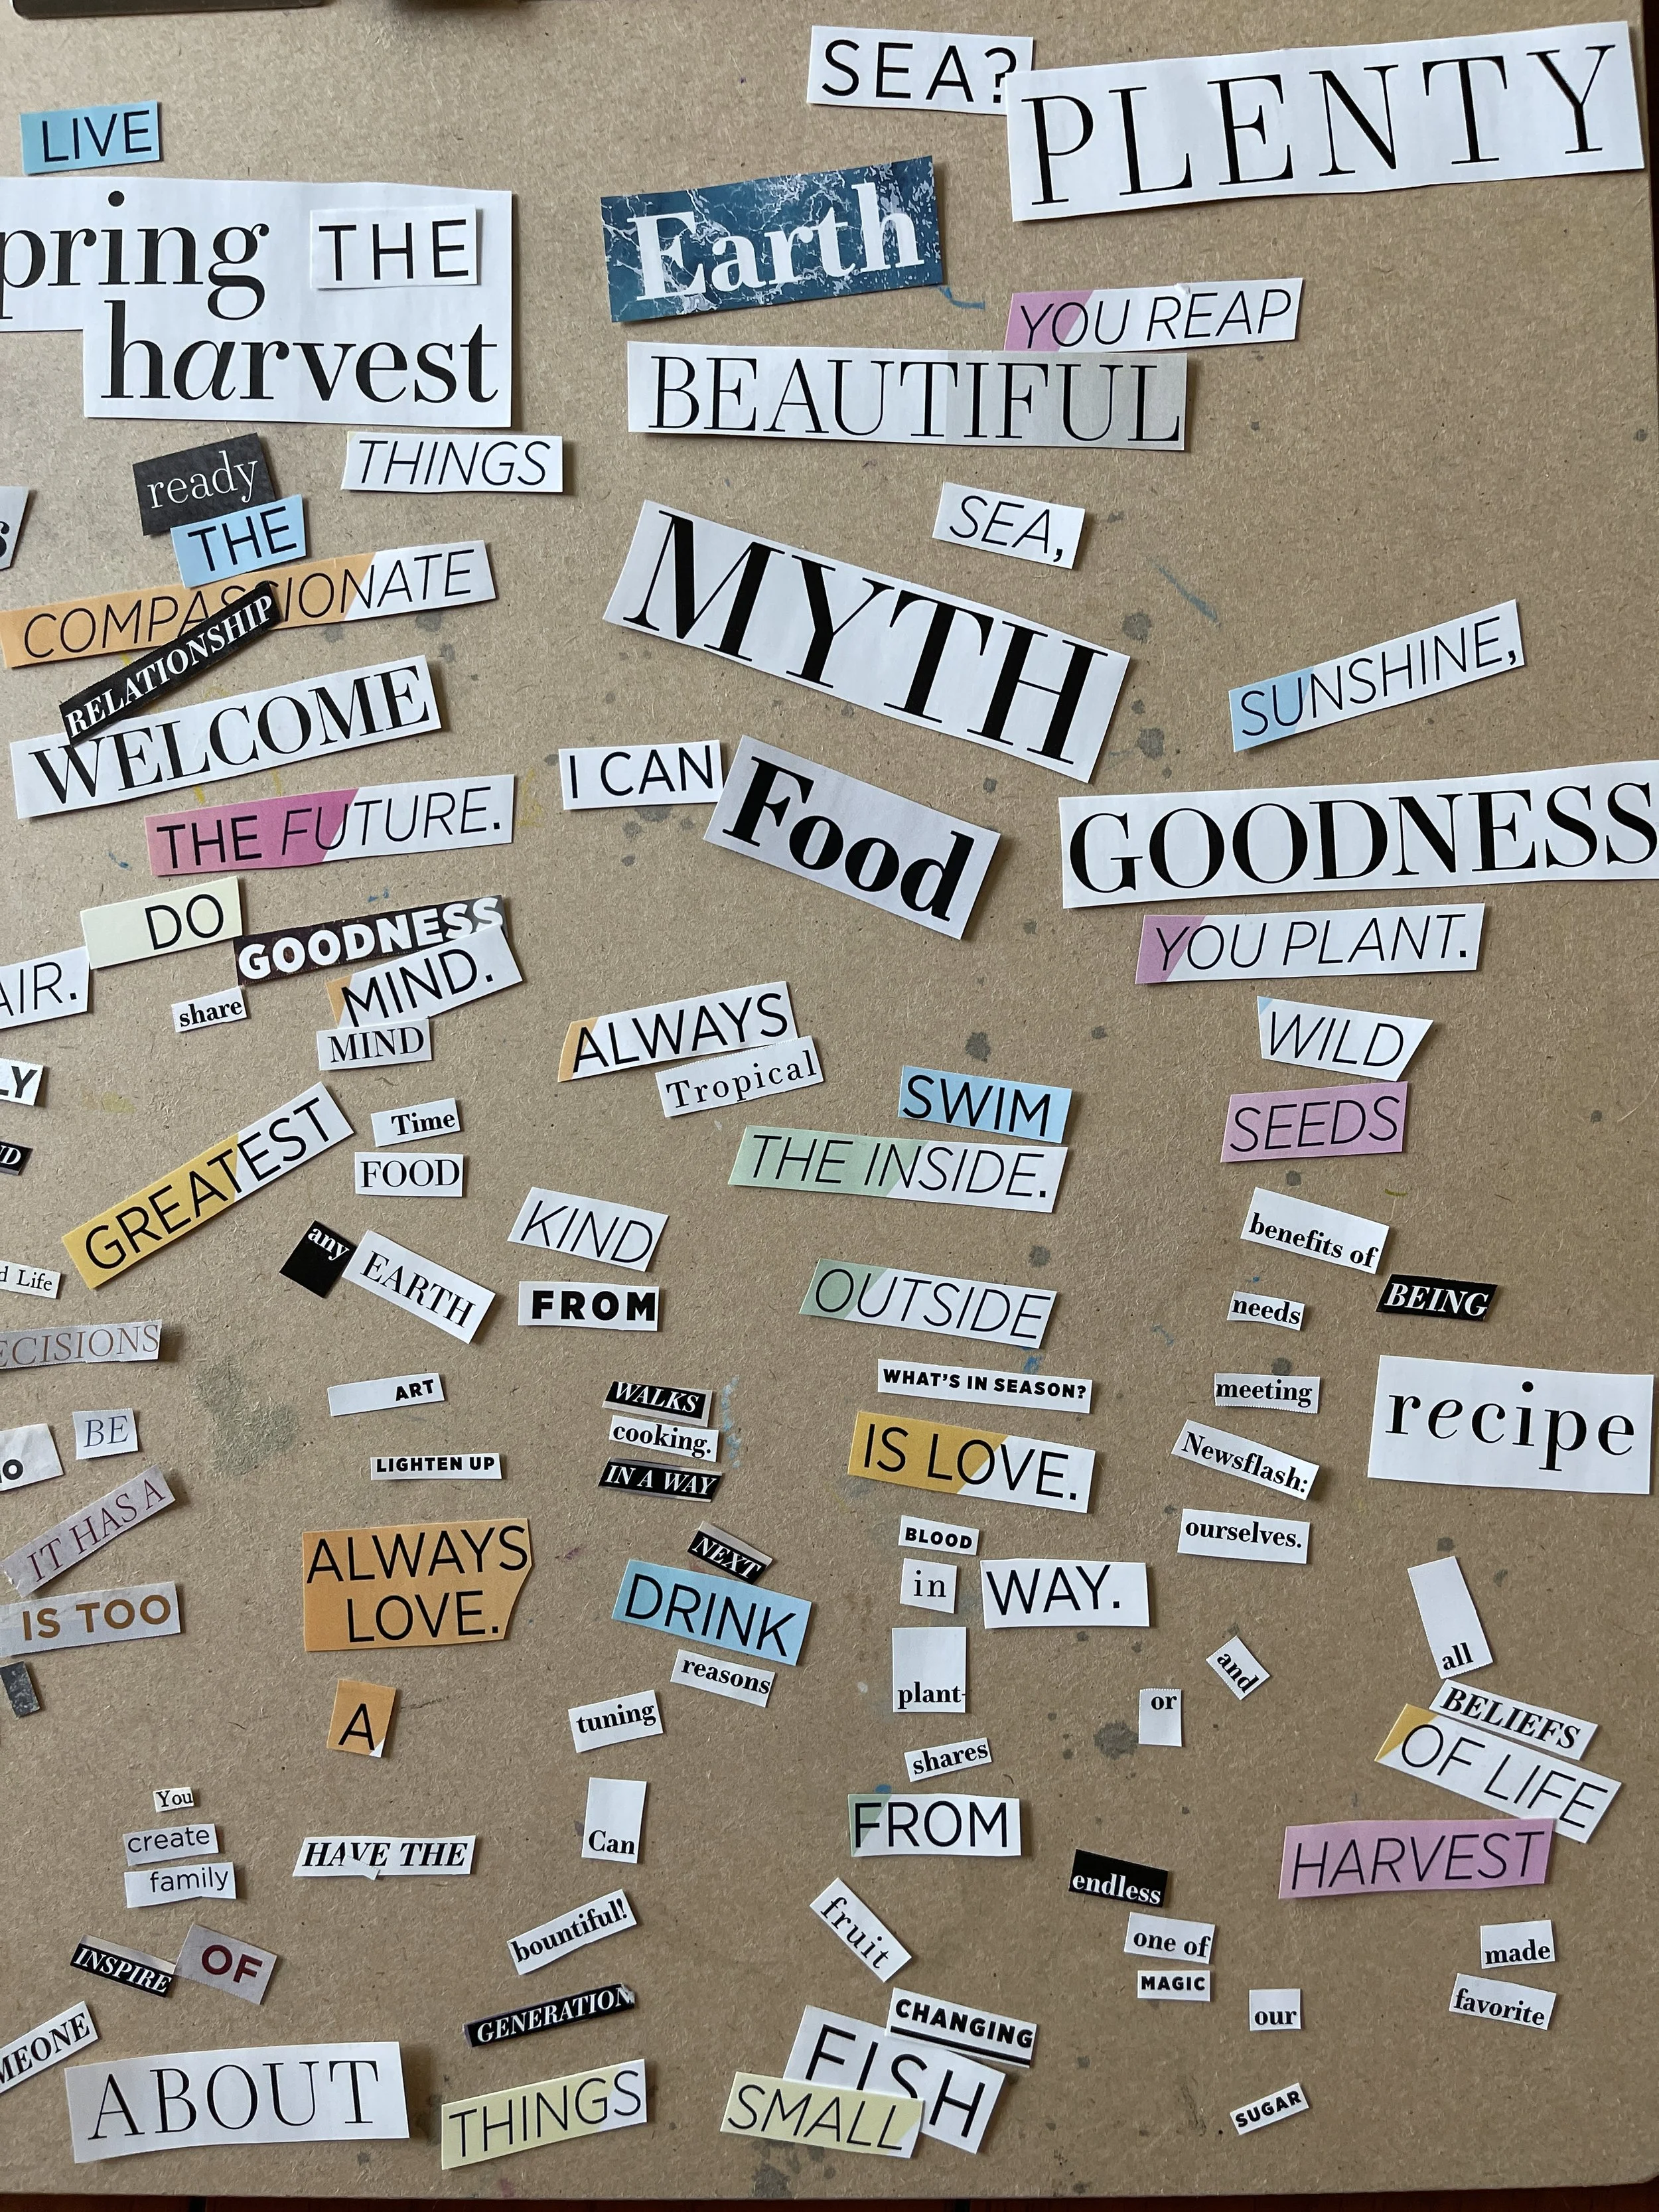 SEA?
PLENTY
LIVE
pring THE
harvest
Earth
YOU REAP
BEAUTIFUL
ready
THINGS
THE
SEA,
COMPASSIONATE
RELATIONSHIP
MYTH
SUNSHINE,
WELCOME
I CAN
Food
GOODNESS
THE FUTURE.
DO
GOODNESS
YOU PLANT.
AIR.
share
MIND.
MIND
ALWAYS
Tropical
WILD
LY
SWIM
SEEDS
GREATEST
Time
THE INSIDE.
FOOD
KIND
benefits of
any
EARTH
d Life
FROM
OUTSIDE
needs
BEING
ECISIONS
ART
WALKS
WHAT'S IN SEASON?
meeting
recipe
BE
cooking.
IS LOVE.
Newsflash:
LIGHTEN UP
IN A WAY
IT HAS A
ourselves.
ALWAYS
LOVE.
NEXT
BLOOD
in
WAY.
IS TOO
DRINK
reasons
all
and
plant-
or
A
tuning
BELIEFS
OF LIFE
shares
You
create
family
HAVE THE
Can
FROM
HARVEST
endless
bountiful!
fruit
one of
made
INSPIRE
OF
MAGIC
favorite
GENERATION
CHANGING
our
MEONE
ABOUT
THINGS
FISH
SMALL
SUGAR